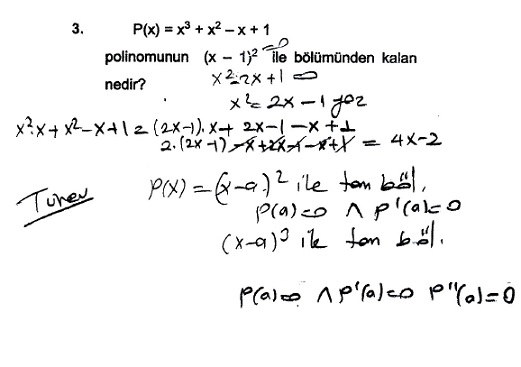 3. P(x) = x³ + x² – x + 1
polinomunun (x – 1)² = 0 ile bölümünden kalan
nedir? x² - 2x + 1 = 0
x² = 2x - 1 yaz
x².x + x² - x + 1 = (2x-1).x + 2x - 1 - x + 1
2.(2x-1) - x + 2x - 1 - x + 1 = 4x - 2
Türev P(x) = (x-a)² ile tam böl.
P(a) = 0 ∧ P'(a) = 0
(x-a)³ ile tam böl.
P(a) = 0 ∧ P'(a) = 0 P''(a) = 0